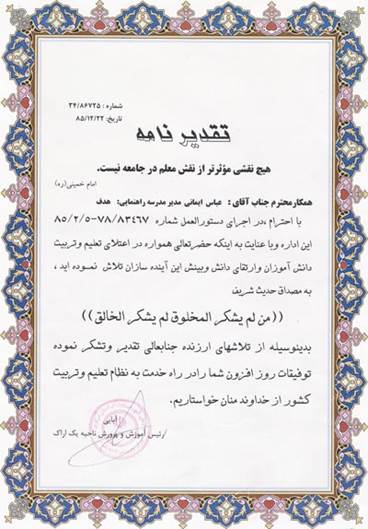 شماره : ۳۴/۸۶۷۲۵
تاریخ: ۸۵/۱۲/۲۲
تقدیر نامه
هیچ نقشی مؤثرتر از نقش معلم در جامعه نیست.
امام خمینی(ره)
همکار محترم جناب آقای : عباس ایمانی مدیر مدرسه راهنمایی: هدف
با احترام ،در اجرای دستورالعمل شماره ۸۵/۲/۵-۷۸/۸۳۴۶۷
این اداره وبا عنایت به اینکه حضرتعالی همواره در اعتلای تعلیم وتربیت
دانش آموزان وارتقای دانش وبینش این آینده سازان تلاش نموده اید ،
به مصداق حدیث شریف
((من لم یشکر المخلوق لم یشکر الخالق))
بدینوسیله از تلاشهای ارزنده جنابعالی تقدیر وتشکر نموده
توفیقات روز افزون شما رادر راه خدمت به نظام تعلیم وتربیت
کشور از خداوند منان خواستاریم.
رئیس آموزش و پرورش ناحیه یک اراک